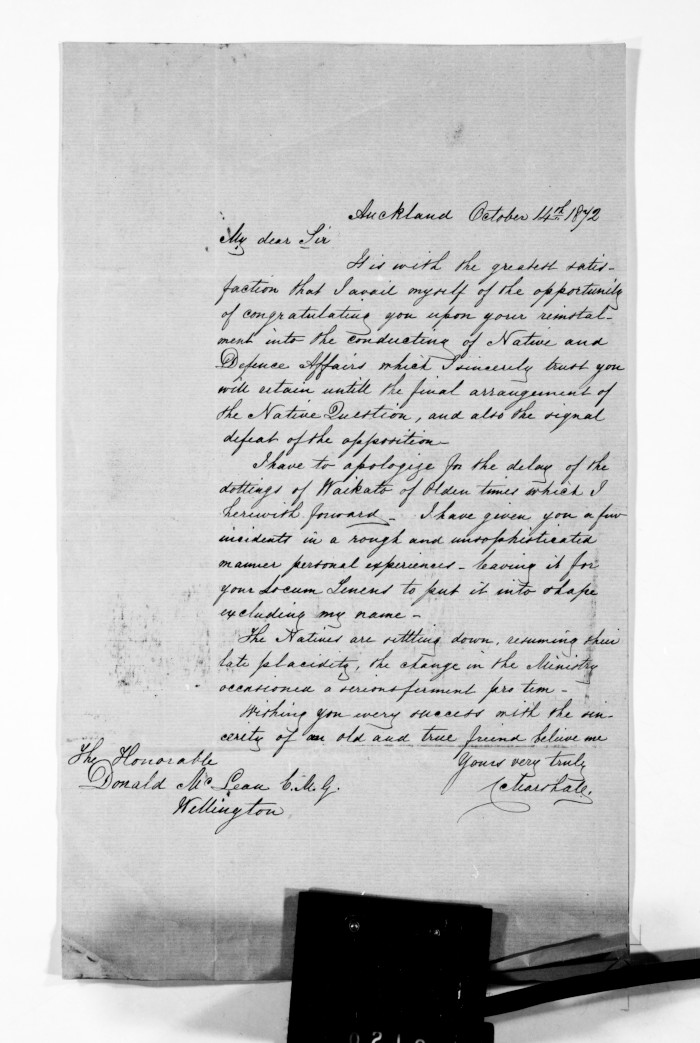 Auckland October 14th 1872
My dear Sir
It is with the greatest satis-
faction that I avail myself of the opportunity
of congratulating you upon your reinstal-
ment into the conducting of Native and
Defence Affairs which I sincerely trust you
will retain untill the final arrangement of
the Native Question, and also the signal
defeat of the opposition -
I have to apologize for the delay of the
dottings of Waikato of Olden times which I
herewith forward - I have given you a few
incidents in a rough and unsophisticated
manner personal experiences - leaving it for
your Locum Tenens to put it into shape
excluding my name -
The Natives are settling down, resuming their
late placidity, the change in the Ministry
occasioned a serious ferment pro tem -
Wishing you every success with the sin-
cerity of an old and true friend believe me
Yours very truly
The Honorable
Donald McLean C.M.G.
Wellington